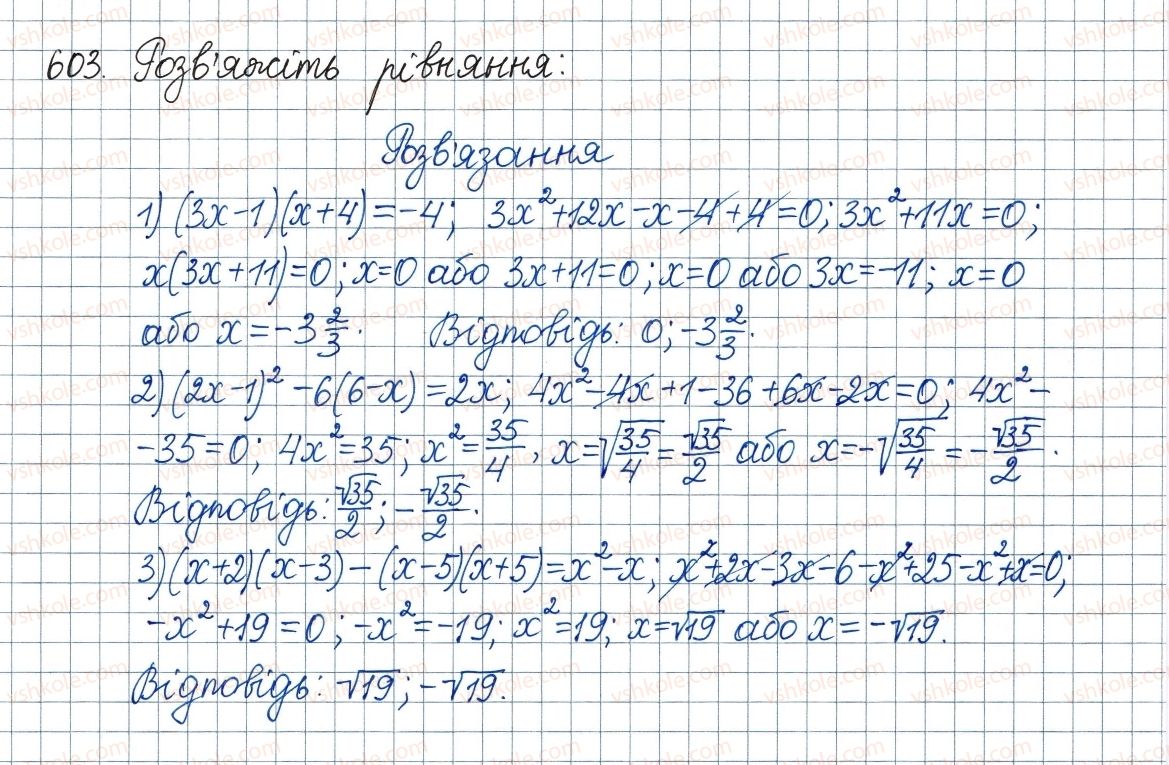 603. Розв'яжіть рівняння:
Розв'язання
1) (3x-1)(x+4)=-4; 3x²+12x-x-4+4=0; 3x²+11x=0;
x(3x+11)=0; x=0 або 3x+11=0; x=0 або 3x=-11; x=0
або x=-3 2/3. Відповідь: 0; -3 2/3.
2) (2x-1)²-6(6-x)=2x; 4x²-4x+1-36+6x-2x=0; 4x²-
-35=0; 4x²=35; x²=35/4, x=√(35/4)=√35/2 або x=-√(35/4)=-√35/2.
Відповідь: √35/2; -√35/2.
3) (x+2)(x-3)-(x-5)(x+5)=x²-x; x²+2x-3x-6-x²+25-x²+x=0;
-x²+19=0; -x²=-19; x²=19; x=√19 або x=-√19.
Відповідь: √19; -√19.